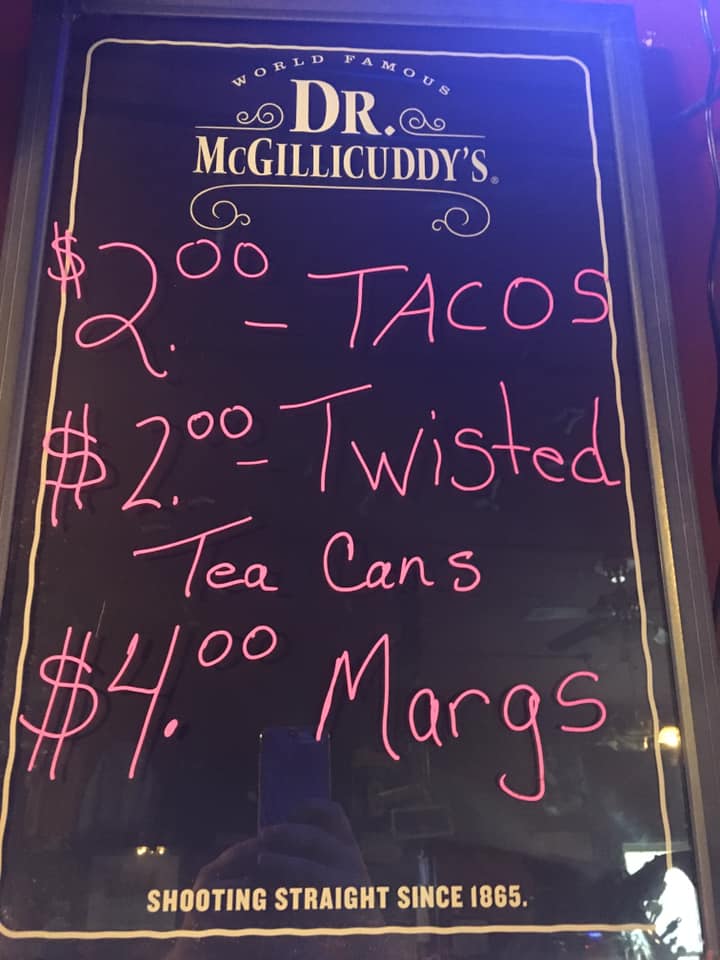 WORLD FAMOUS
DR.
McGILLICUDDY'S®
$2.00 - TACOS
$2.00 - Twisted
Tea Cans
$4.00 Margs
SHOOTING STRAIGHT SINCE 1865.